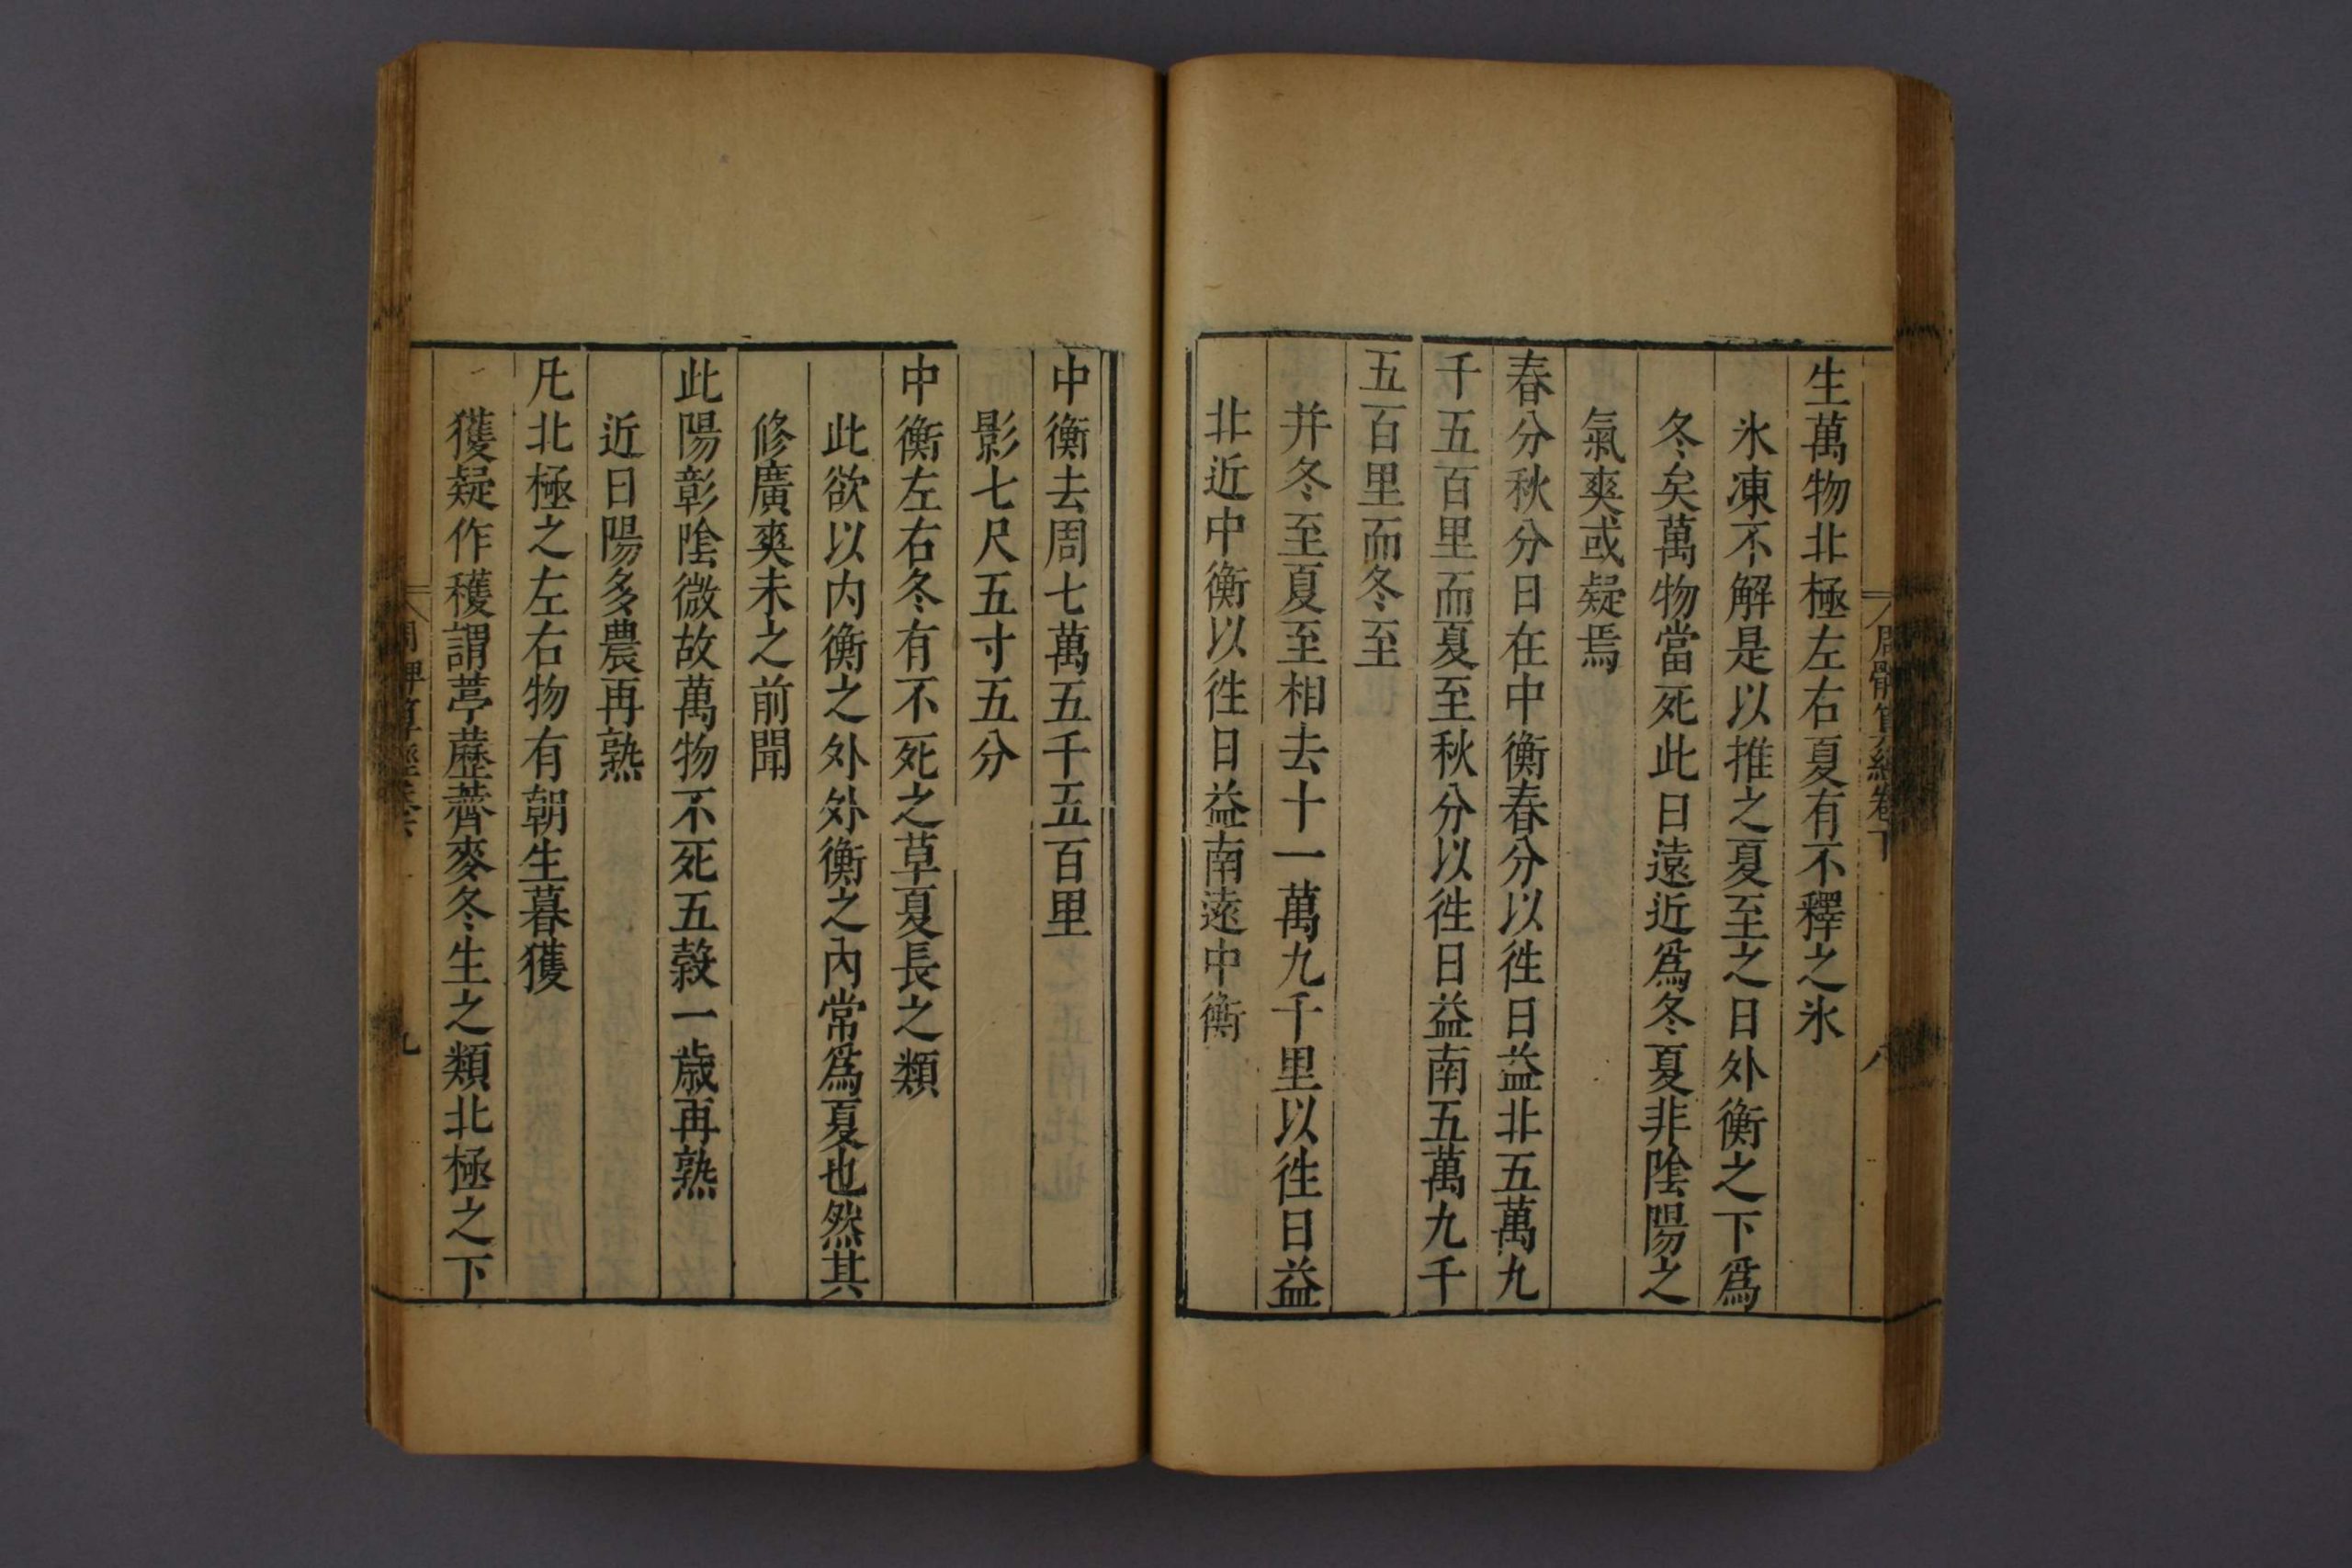 周髀算經卷下 八
生萬物北極左右夏有不釋之氷
氷凍不解是以推之夏至之日外衡之下爲
冬矣萬物當死此日遠近爲冬夏非陰陽之
氣爽或疑焉
春分秋分日在中衡春分以徃日益北五萬九
千五百里而夏至秋分以徃日益南五萬九千
五百里而冬至
并冬至夏至相去十一萬九千里以徃日益
北近中衡以徃日益南遠中衡
中衡去周七萬五千五百里
影七尺五寸五分
中衡左右冬有不死之草夏長之類
此欲以内衡之外外衡之內常爲夏也然其
修廣爽未之前聞
此陽彰陰微故萬物不死五穀一歲再熟
近日陽多農再熟
凡北極之左右物有朝生暮獲
獲疑作穫謂葶藶薺麥冬生之類北極之下
周髀算經卷下 九